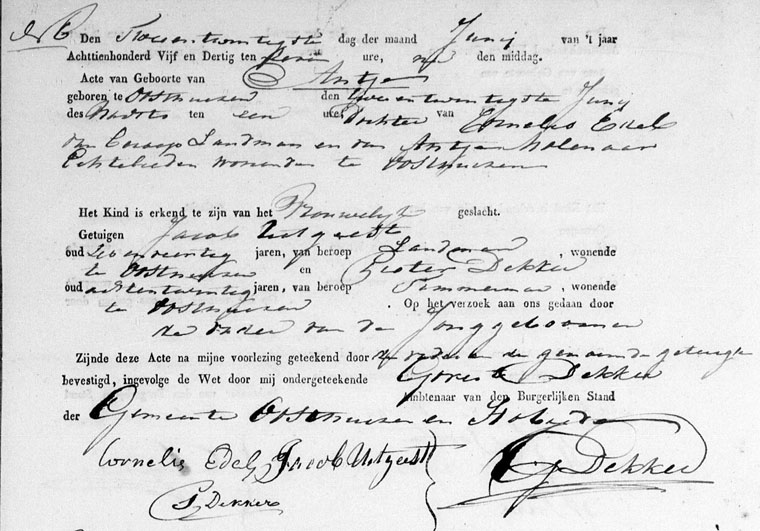 Den Twee en twintigste dag der maand Junij van 't jaar
Achttienhonderd Vijf en Dertig ten ure, den middag.
Acte van Geboorte van Antje
geboren te Oosthuizen den twee en twintigste Junij
des Nachts ten een ure, Dochter van Cornelis Edel
van beroep Landman en van Antje Molenaar
Echtelieden wonende te Oosthuizen
Het Kind is erkend te zijn van het Vrouwelijk geslacht.
Getuigen Jacob Uitgeest
oud jaren, van beroep Landman, wonende
te Oosthuizen en Pieter Dekker
oud achtentwintig jaren, van beroep Timmerman, wonende
te Oosthuizen. Op het verzoek aan ons gedaan door
de vader van de Jonggeboorene
Zijnde deze Acte na mijne voorlezing geteekend door de vader en de genoemde getuige
bevestigd, ingevolge de Wet door mij ondergeteekende Dekker
Ambtenaar van den Burgerlijken Stand
der Gemeente Oosthuizen en
Cornelis Edel Jacob Uitgeest
Dekker
Dekker